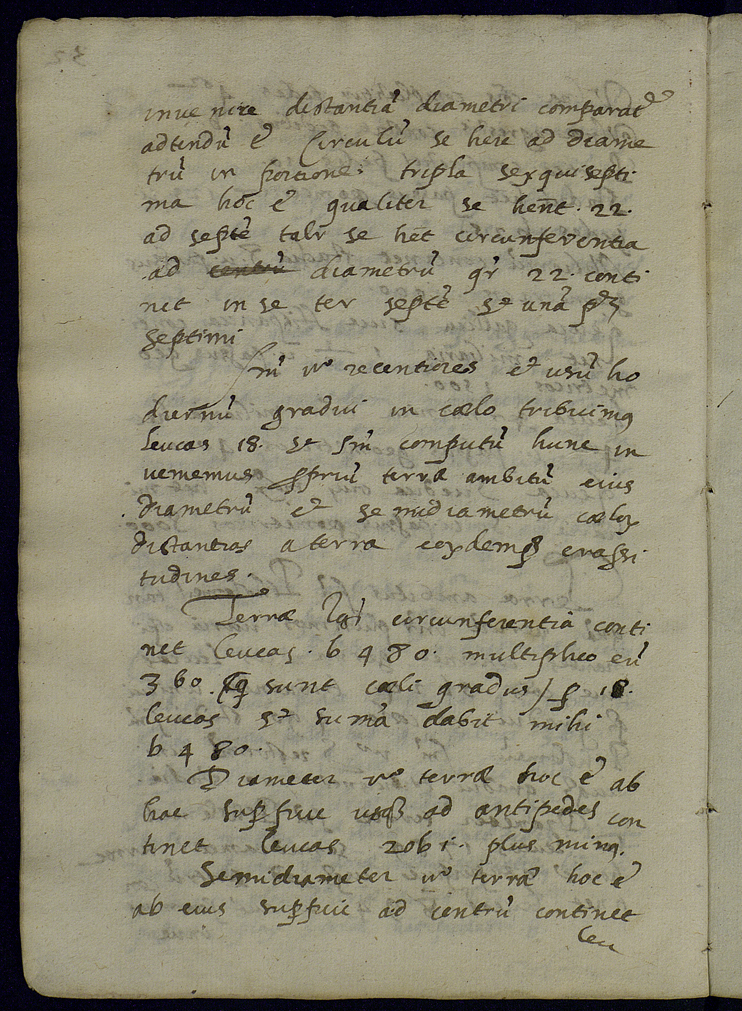 invenire distantiã diametri comparatẽ
adtendũ ẽ Circulũ se hẽre ad diame
trũ in portione tripla sexquisepti
ma hoc ẽ qualiter se hẽnt .22.
ad septẽ talr̃ se hẽt circunferentia
.ad centrũ diametrũ qr̃ 22. conti
net in se ter septẽ et unã
septimi
Sm̃ vº recentiores et usũ ho
diernũ gradui in cœlo tribuimꝰ
leucas 18. et sm̃ computũ hunc in
venemus terræ ambitũ eius
.diametrũ et semidiametrũ cœloꝝ
distantias a terra eoꝝdemqꝫ crassi
tudines.
Terræ igr̃ circunferentia conti
net leucas . 6480. multiplico em̃
360 (q̃ sunt cœli gradus) ꝑ 18.
leucas et sumã dabit mihi
6480.
Diameter vº terræ hoc ẽ ab
hac suꝑficie usqꝫ ad antipodes con
tinet leucas 2061. plus minꝰ.
Semidiameter vº terræ hoc ẽ
ab eius suꝑficie ad centrũ continet
leu